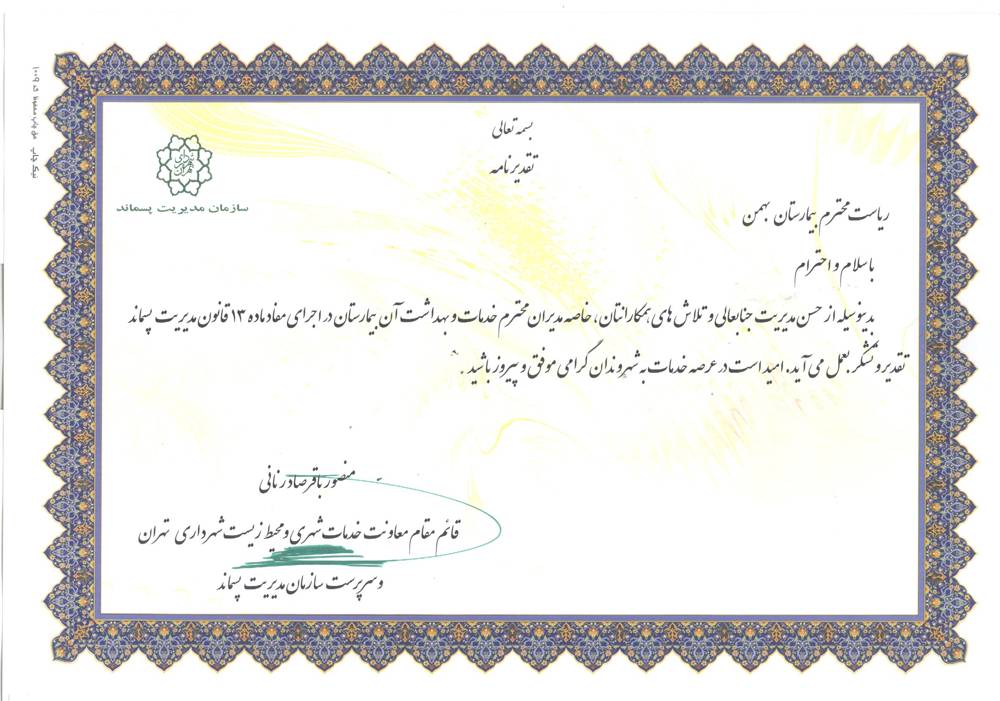 بسمه تعالی
تقدیرنامه
شهرداری تهران
سازمان مدیریت پسماند
ریاست محترم بیمارستان بهمن
با سلام و احترام
بدینوسیله از حسن مدیریت جنابعالی و تلاش های همکارانتان، خاصه مدیران محترم خدمات و بهداشت آن بیمارستان در اجرای مفاد ماده ۱۳ قانون مدیریت پسماند
تقدیر و تشکر بعمل می آید. امید است در عرصه خدمات به شهروندان گرامی موفق و پیروز باشید.
منصور باقر صاد رنانی
قائم مقام معاونت خدمات شهری و محیط زیست شهرداری تهران
و سرپرست سازمان مدیریت پسماند
نیک چاپ حق چاپ محفوظ کد ۱۰۰۹